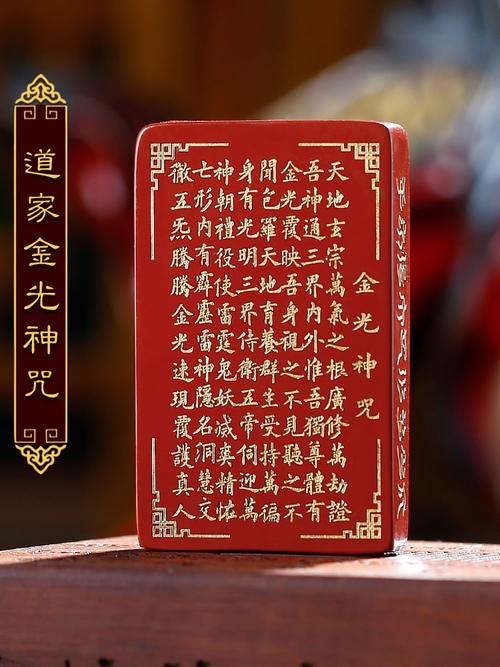 道家金光神咒
金光神咒
天地玄宗萬氣之根廣修萬劫證
吾神通三界内外惟吾獨尊體有
金光覆映吾身視之不見聽之不
聞包羅天地育養群生受持萬徧
身有光明三界侍衛五帝伺迎萬
神朝禮役使雷霆鬼妖滅爽精怪
亡形内有霹靂雷神隱名洞慧交
徹五炁騰騰金光速現覆護真人